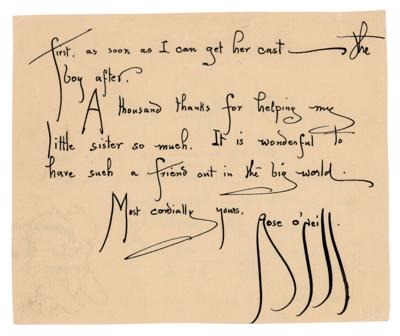 first, as soon as I can get her cast — the
boy after.
A thousand thanks for helping my
little sister so much. It is wonderful to
have such a friend out in the big world.
Most cordially yours,
Rose O'Neill.